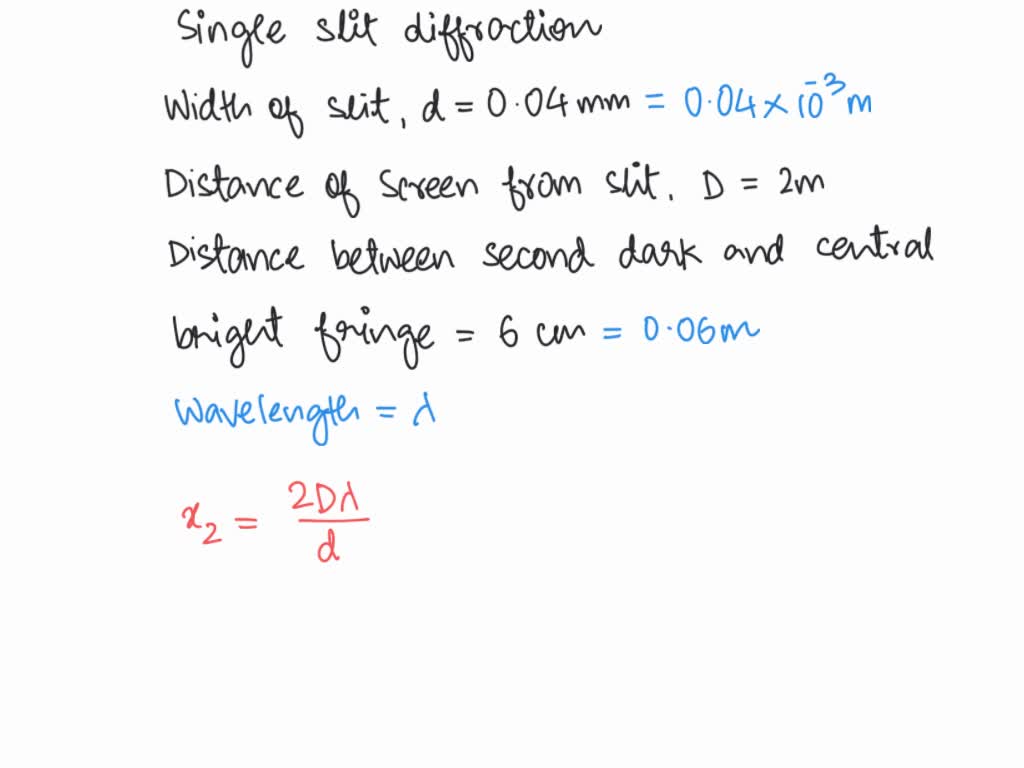 Single slit diffraction
Width of slit, d = 0.04 mm = 0.04 × 10⁻³ m
Distance of screen from slit, D = 2m
Distance between second dark and central
bright fringe = 6 cm = 0.06m
Wavelength = λ
x₂ = 2Dλ / d